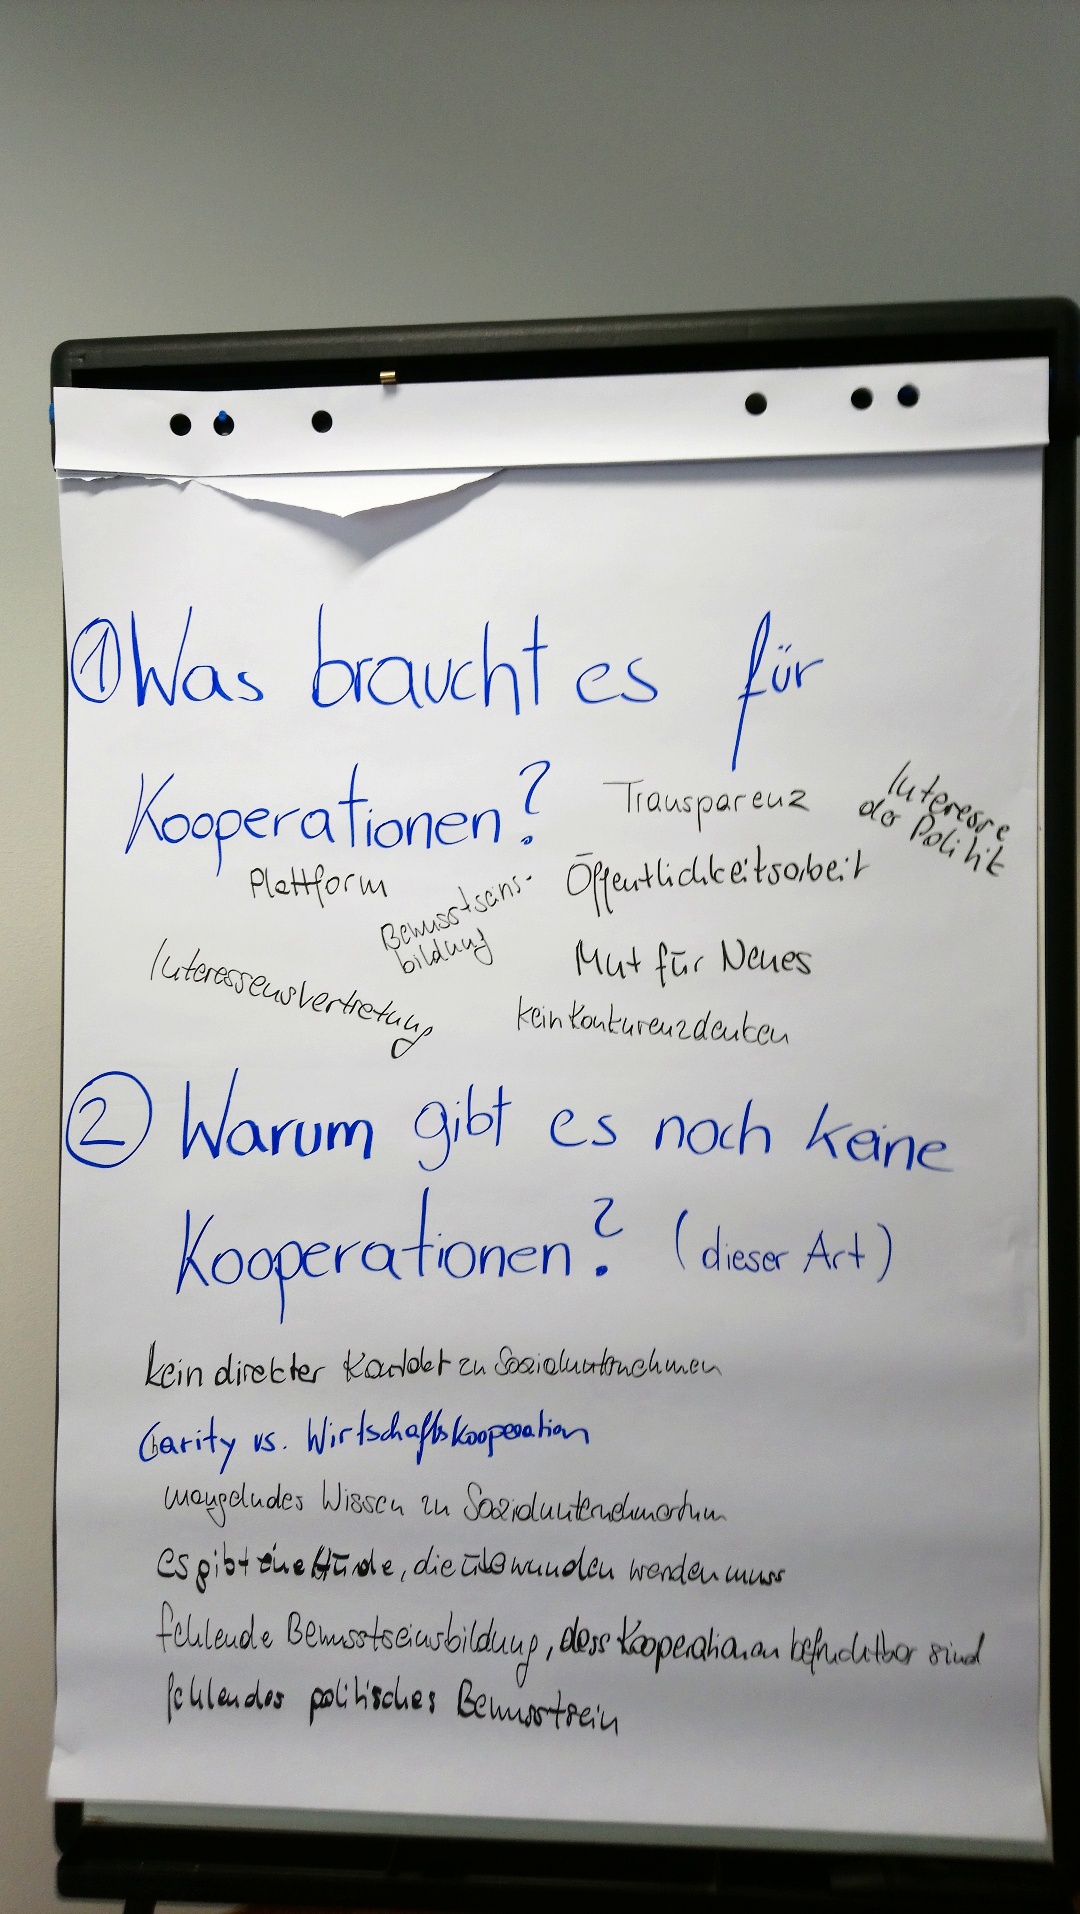 ① Was braucht es für
Kooperationen?
Transparenz
Interesse
der Politik
Plattform
Bewusstseins-
bildung
Öffentlichkeitsarbeit
Interessensvertretung
Mut für Neues
kein Konkurenzdenken
② Warum gibt es noch keine
Kooperationen? (dieser Art)
kein direkter Kontakt zu Sozialunternehmen
Charity vs. Wirtschaftskooperation
mangelndes Wissen zu Sozialunternehmertum
es gibt eine Hürde, die überwunden werden muss
fehlende Bewusstseinsbildung, dass Kooperationen befruchtbar sind
fehlendes politisches Bewusstsein